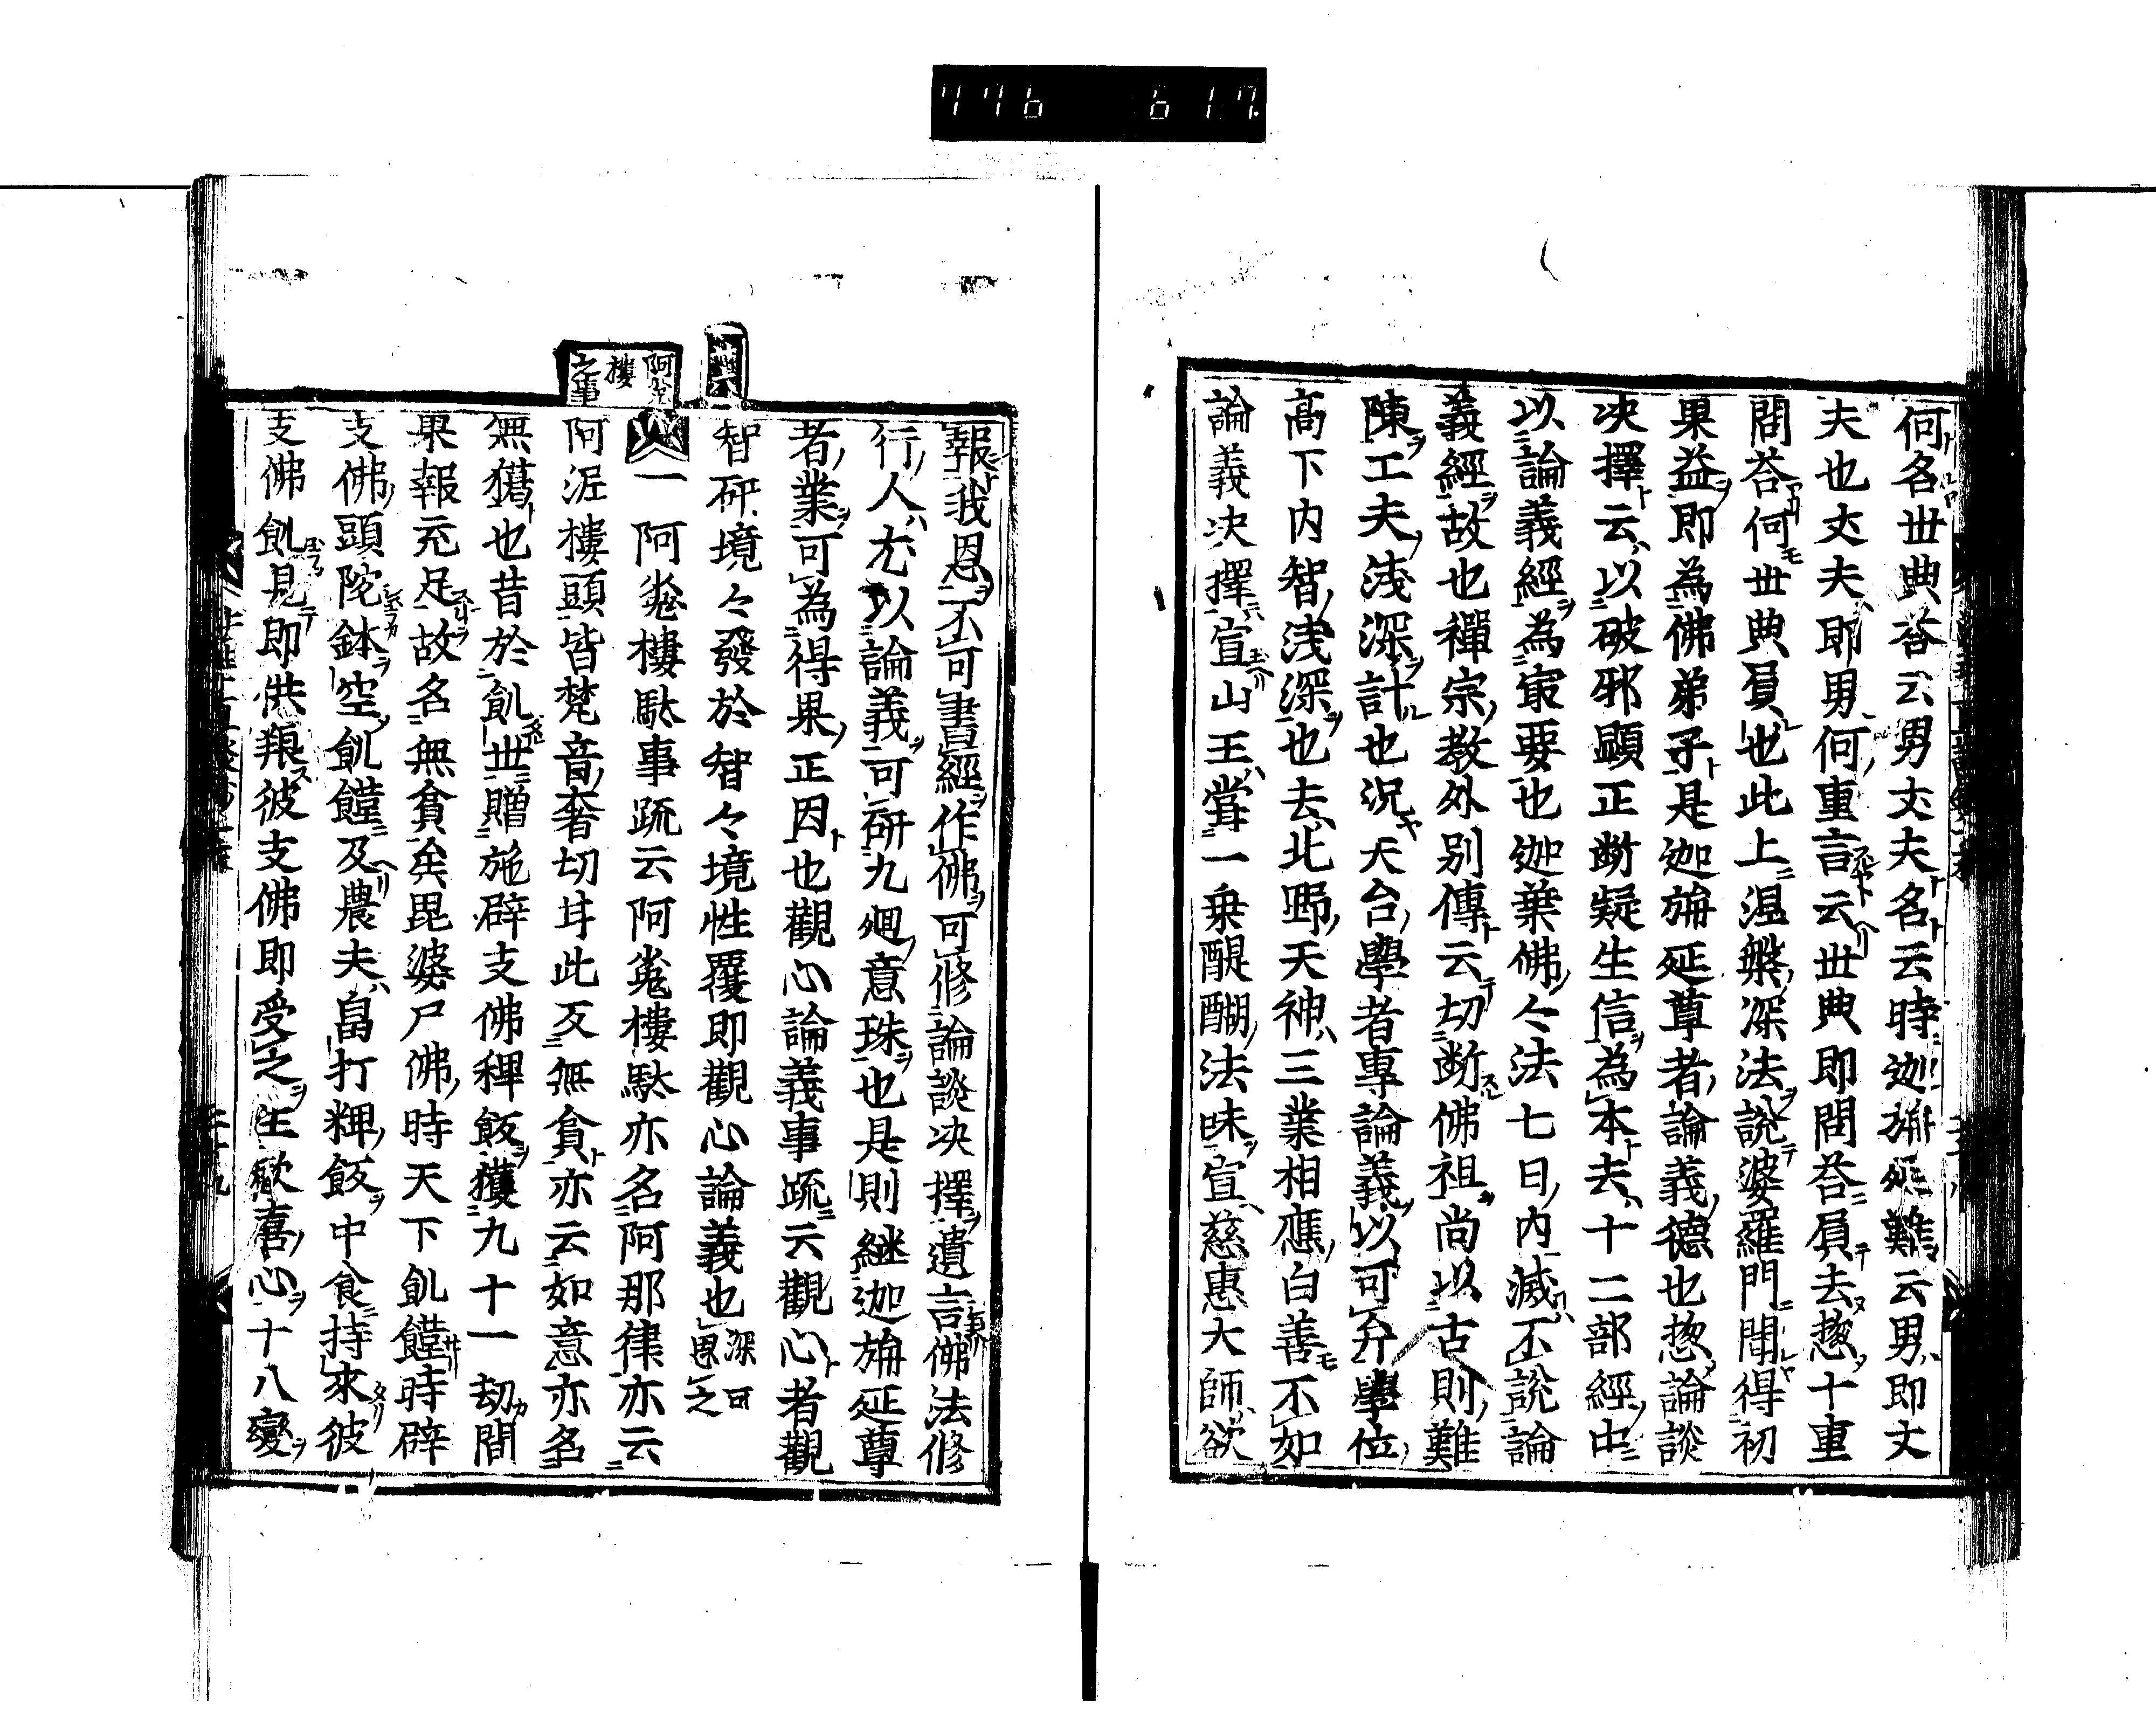 776 617
何名世典荅云男丈夫名云時迦旃延難云男即丈
夫也丈夫即男何重言云世典即問荅屓去惣十重
問荅何世典屓也此上涅槃深法說婆羅門聞得初
果益即為佛弟子是迦旃延尊者論義德也惣論談
决擇云以破邪顕正断疑生信為本去十二部經中
以論義經為最要也迦葉佛々法七日内滅不說論
義經故也禪宗教外別傳云切断佛祖尚以古則難
陳工夫浅深計也况天台學者專論義以可弁學位
高下内智浅深也去北野天神三業相應白善不如
論義决擇宣山王嘗一乗醍醐法味宣慈惠大師欲
報我恩不可書經作佛可修論談决擇遺言佛法修
行人尤以論義可研九廻意珠也是則継迦旃延尊
者業可為得果正因也觀心論義事䟽云觀心者觀
智研境々發於智々境性覆即觀心論義也深可思之
阿㝹樓之事
一阿㝹樓駄事䟽云阿㝹樓駄亦名阿那律亦云
阿泥樓頭皆梵音奢切耳此云無貪亦云如意亦名
無獦也昔於飢世贈施辟支佛稗飯獲九十一劫間
果報充足故名無貧矣毘婆尸佛時天下飢饉時辟
支佛頭陀鉢空飢饉及農夫畠打粺飯中食持來彼
支佛飢見即供粮彼支佛即受之生歓喜心十八變